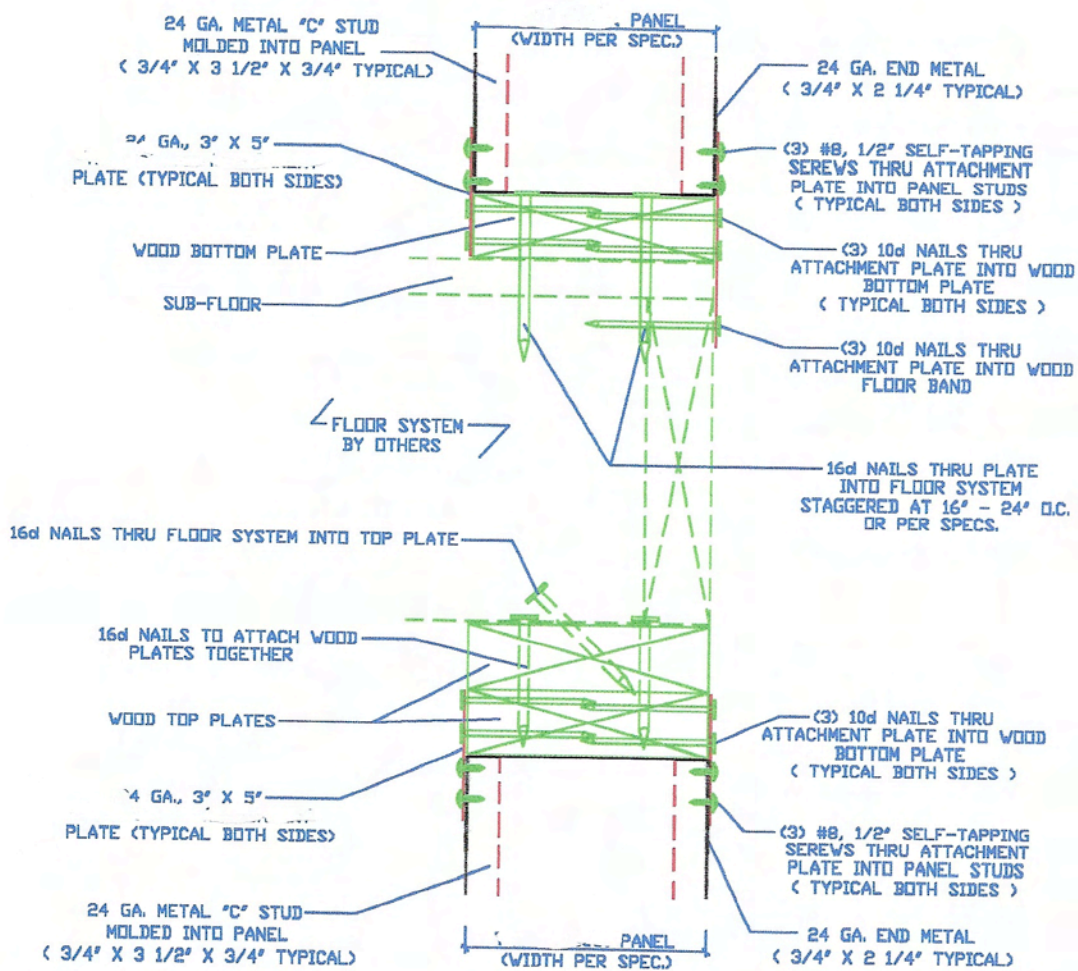 24 GA. METAL "C" STUD
MOLDED INTO PANEL
( 3/4" X 3 1/2" X 3/4" TYPICAL)
PANEL
(WIDTH PER SPEC.)
24 GA. END METAL
( 3/4" X 2 1/4" TYPICAL)
GA., 3" X 5"
PLATE (TYPICAL BOTH SIDES)
(3) #8, 1/2" SELF-TAPPING
SEREWS THRU ATTACHMENT
PLATE INTO PANEL STUDS
( TYPICAL BOTH SIDES )
WOOD BOTTOM PLATE
(3) 10d NAILS THRU
ATTACHMENT PLATE INTO WOOD
BOTTOM PLATE
( TYPICAL BOTH SIDES )
SUB-FLOOR
(3) 10d NAILS THRU
ATTACHMENT PLATE INTO WOOD
FLOOR BAND
FLOOR SYSTEM
BY OTHERS
16d NAILS THRU PLATE
INTO FLOOR SYSTEM
STAGGERED AT 16" - 24" O.C.
OR PER SPECS.
16d NAILS THRU FLOOR SYSTEM INTO TOP PLATE
16d NAILS TO ATTACH WOOD
PLATES TOGETHER
WOOD TOP PLATES
(3) 10d NAILS THRU
ATTACHMENT PLATE INTO WOOD
BOTTOM PLATE
( TYPICAL BOTH SIDES )
4 GA., 3" X 5"
PLATE (TYPICAL BOTH SIDES)
(3) #8, 1/2" SELF-TAPPING
SEREWS THRU ATTACHMENT
PLATE INTO PANEL STUDS
( TYPICAL BOTH SIDES )
24 GA. METAL "C" STUD
MOLDED INTO PANEL
( 3/4" X 3 1/2" X 3/4" TYPICAL)
PANEL
(WIDTH PER SPEC.)
24 GA. END METAL
( 3/4" X 2 1/4" TYPICAL)